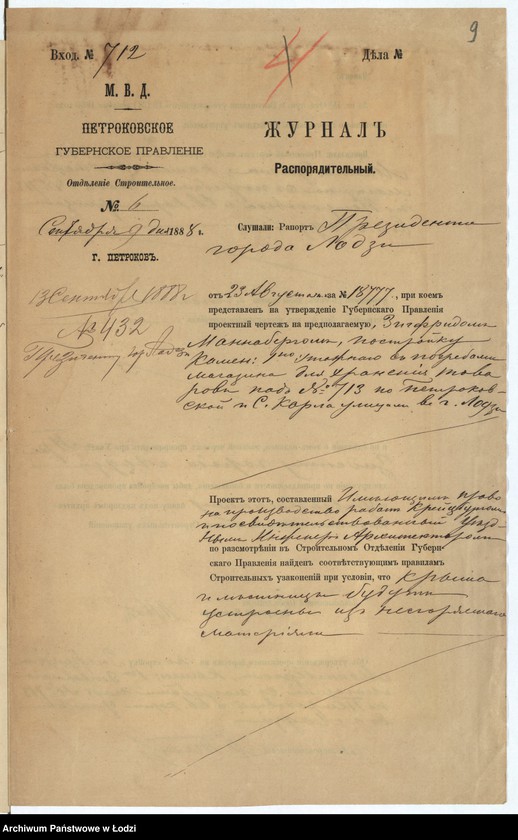 9
Вход. № 712
Дѣла №
М. В. Д.
ПЕТРОКОВСКОЕ
ГУБЕРНСКОЕ ПРАВЛЕНІЕ
Отдѣленіе Строительное.
№ 6
Сентября дня 1888 г.
Г. ПЕТРОКОВЪ.
13 Сентября 1888 г
№ 432
Президенту гор Лодзи
ЖУРНАЛЪ
Распорядительный.
Слушали: Рапортъ Президента
города Лодзи
отъ 23 Августа за № 18777, при коемъ
представленъ на утвержденіе Губернскаго Правленія
проектный чертежъ на предполагаемую, Зигфридомъ
Маннабергомъ, постройку
камен: этажнаго съ погребами
магазина для храненія това
ровъ подъ № 713 по Петроков-
ской и С. Карла улицамъ въ г. Лодзи
Проектъ этотъ, составленный Имѣющимъ право
на производство работъ Крейцбургомъ
и посвидѣтельствованный Уѣзд-
нымъ Инженеръ Архитекторомъ
по разсмотрѣніи въ Строительномъ Отдѣленіи Губерн-
скаго Правленія найденъ соотвѣтствующимъ правиламъ
Строительныхъ узаконеній при условіи, что крыша
и лѣстницы будутъ
устроены изъ несгораемаго
матеріяла
Archiwum Państwowe w Łodzi